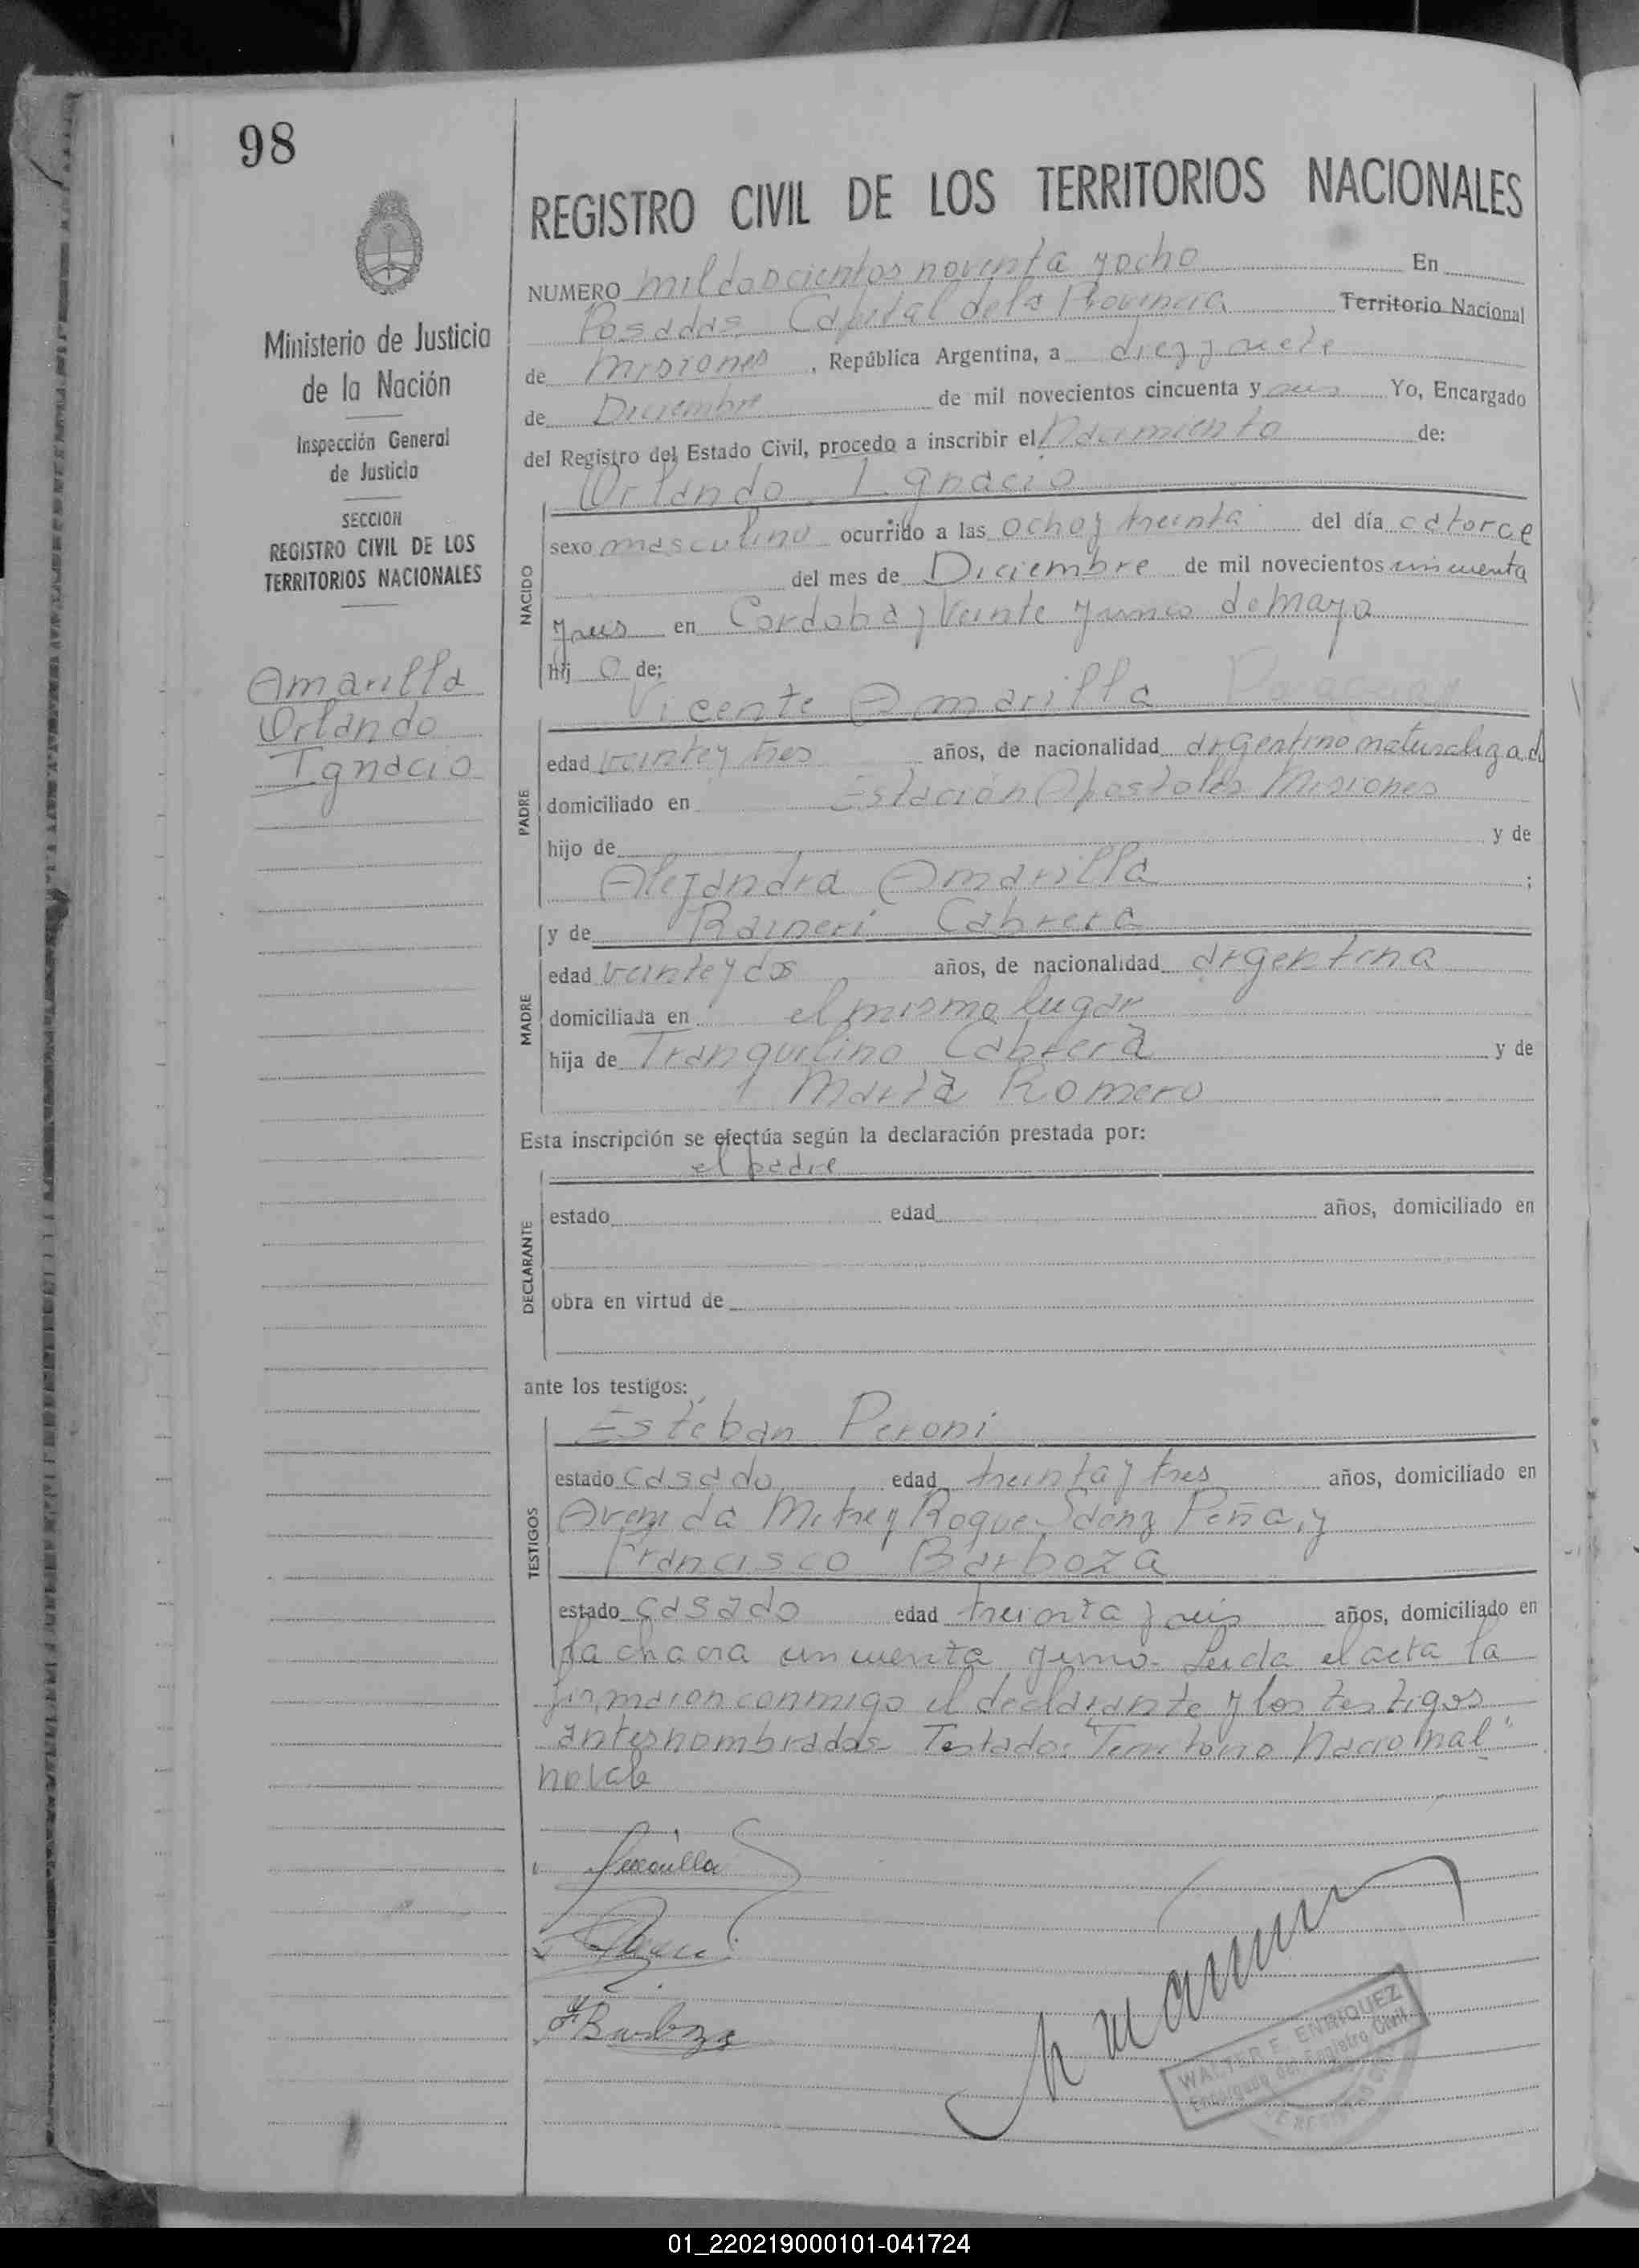 98
REGISTRO CIVIL DE LOS TERRITORIOS NACIONALES
Ministerio de Justicia
de la Nación
Inspección General
de Justicia
SECCION
REGISTRO CIVIL DE LOS
TERRITORIOS NACIONALES
Amarilla
Orlando
Ignacio
NUMERO mil doscientos noventa y ocho En
Posadas, Capital de la Provincia Territorio Nacional
de Misiones, República Argentina, a diez y siete
de Diciembre de mil novecientos cincuenta y seis Yo, Encargado
del Registro del Estado Civil, procedo a inscribir el Nacimiento de:
Orlando Ignacio
NACIDO
sexo masculino ocurrido a las ocho y treinta del día catorce
del mes de Diciembre de mil novecientos cincuenta
y seis en Cordoba y Veinte y cinco de Mayo
hij o de:
Vicente Amarilla Paraguay
PADRE
edad veinte y tres años, de nacionalidad argentino naturalizad
domiciliado en Estación Apostoles Misiones
hijo de y de
Alejandra Amarilla ;
y de Raineri Cabrera
MADRE
edad veinte y dos años, de nacionalidad argentina
domiciliada en el mismo lugar
hija de Tranquilino Cabrera y de
Marta Romero
Esta inscripción se efectúa según la declaración prestada por:
el padre
DECLARANTE
estado edad años, domiciliado en
obra en virtud de
ante los testigos:
Esteban Peroni
TESTIGOS
estado casado edad treinta y tres años, domiciliado en
Avenida Mitre y Roque Saenz Peña, y
Francisco Barboza
estado casado edad treinta y seis años, domiciliado en
la chacra cincuenta y uno. Leida el acta la
firmaron conmigo el declarante y los testigos
antes nombrados. Testado: "Territorio Nacional"
no vale
Amarilla
F Barboza
WALTER E. ENRIQUEZ
Encargado del Registro Civil
01_220219000101-041724